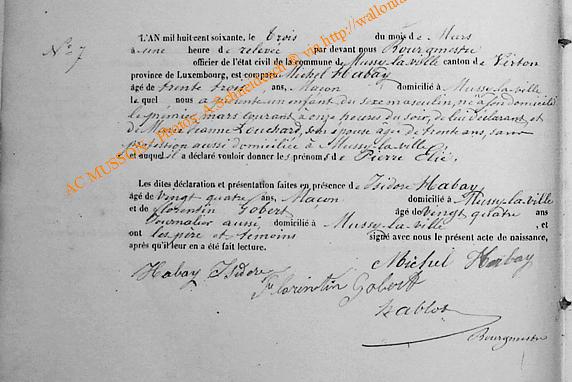 N° 7
L'AN mil huit cent soixante, le trois du mois de Mars
à une heure de relevée par devant nous Bourgmestre
officier de l'état civil de la commune de Mussy-la-ville canton de Virton
province de Luxembourg, est comparu Michel Habay
âgé de trente trois ans, Maçon domicilié à Mussy-la-ville
lequel nous a présenté un enfant du sexe masculin, né à son domicile
le premier mars courant à onze heures du soir, de lui déclarant et
de Marie Jeanne Louchard, son épouse âgée de trente ans, sans
profession aussi domiciliée à Mussy-la-ville
et auquel il a déclaré vouloir donner les prénoms de Pierre Elie.
Les dites déclaration et présentation faites en présence de Isidore Habay
âgé de vingt quatre ans, Maçon domicilié à Mussy-la-ville
et de Florentin Gobert âgé de vingt quatre ans
Journalier aussi domicilié à Mussy-la-ville, et
ont les père et témoins signé avec nous le présent acte de naissance,
après qu'il leur en a été fait lecture.
Michel Habay
Habay Isidore
Florentin Gobert
Bourgmestre
AC MUSSON - Photos A.Schneidesch © via http://wallonia